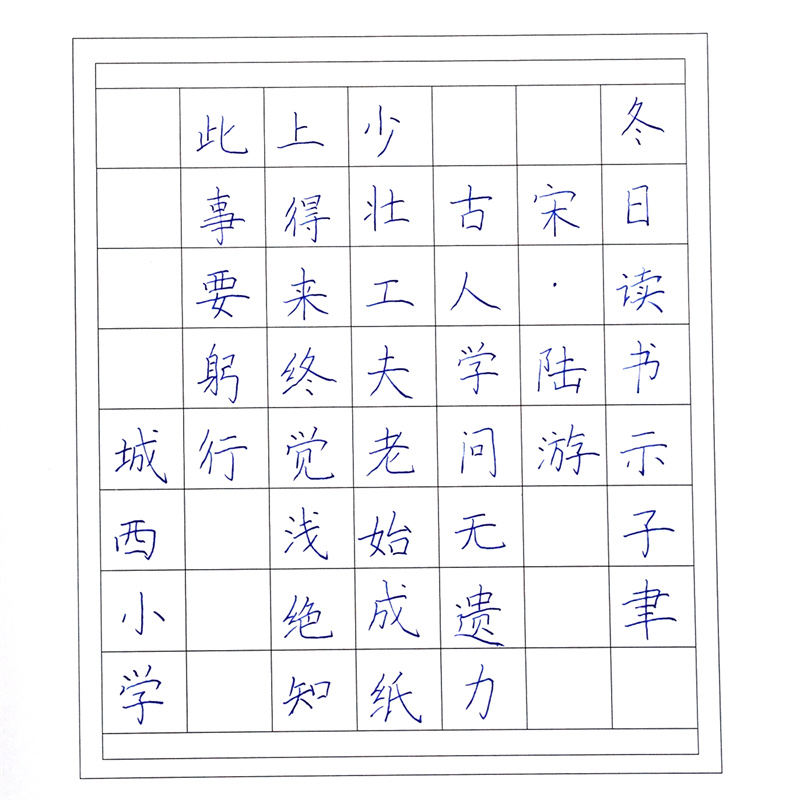 冬日读书示子聿
宋·陆游
古人学问无遗力
少壮工夫老始成纸
上得来终觉浅绝知
此事要躬行
城西小学